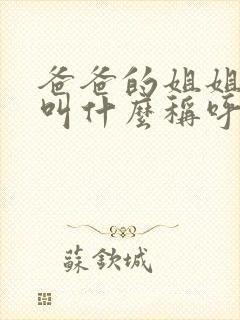 爸爸的姐姐
叫什麼稱呼
蘇欽城